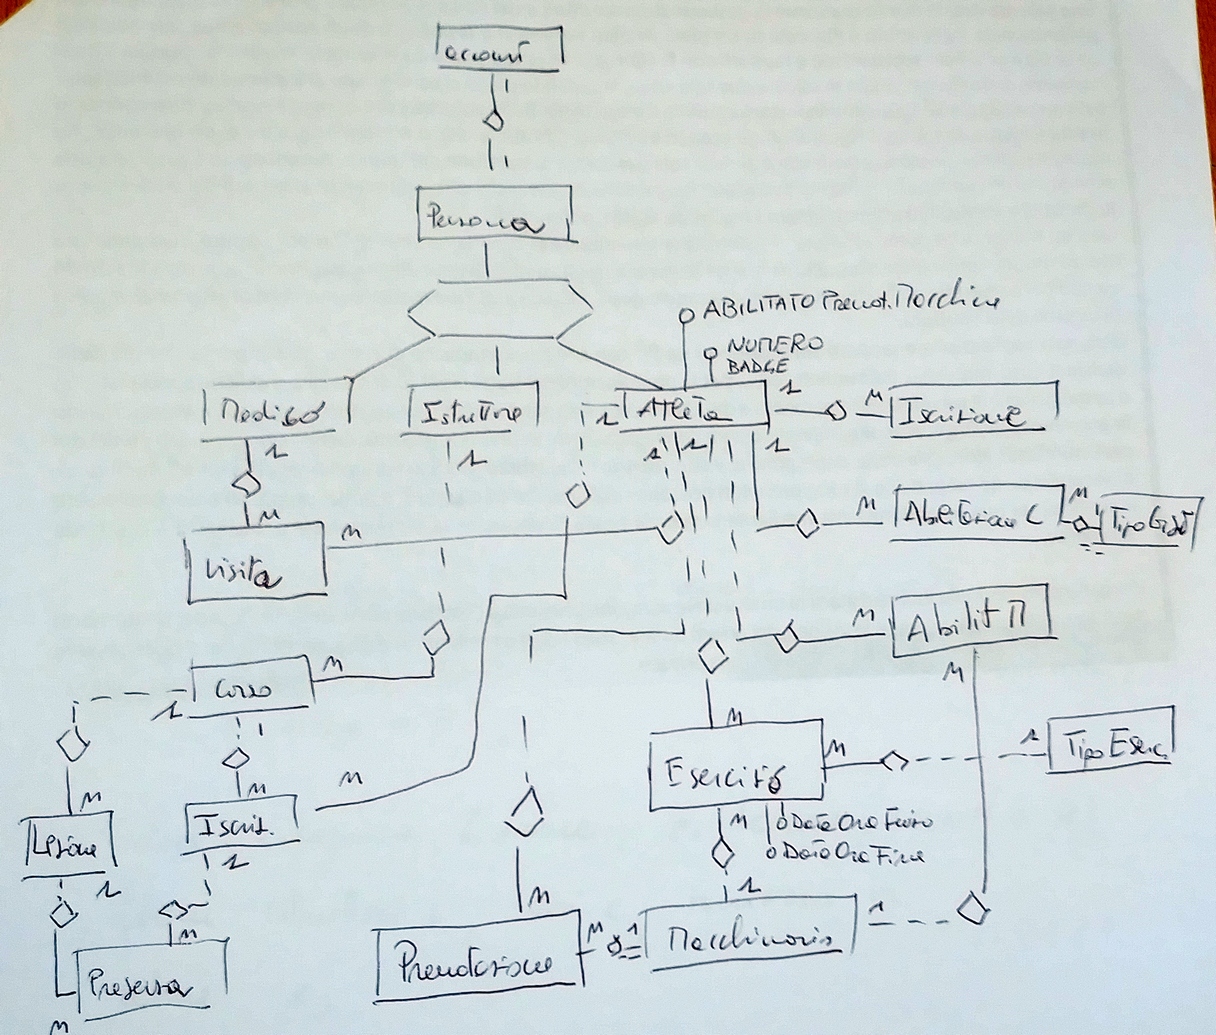 account
1
1
Persona
ABILITATO Prenot. Macchine
NUMERO
BADGE
Medico
Istruttore
1
Atleta
1
M
Iscrizione
1
1
1
1
1
M
M
M
Visita
M
Abilitazione C
M
1
M
Abilit M
M
Corso
M
1
1
M
M
M
Esercizio
M
1
Tipo Eserc
M
M
Iscriz.
M
Data Ora Inizio
Data Ora Fine
Lezione
1
1
1
M
M
1
Presenza
M
Prenotazione
M
1
Macchinario
1